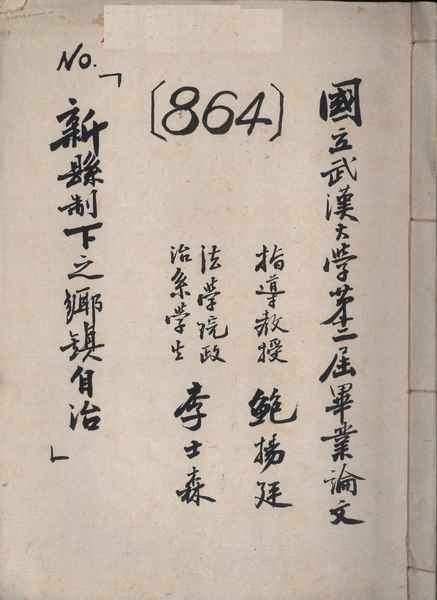 國立武漢大學第二屆畢業論文
指導教授 鮑揚廷
法學院政
治系學生 李士森
〔864〕
No.
「新縣制下之鄉鎮自治」